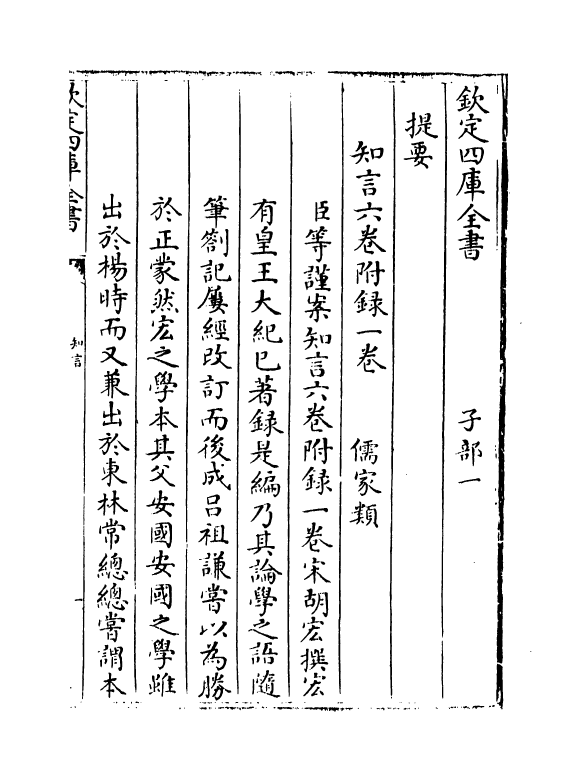 欽定四庫全書　子部一
提要
知言六卷附録一卷　儒家類
臣等謹案知言六卷附録一卷宋胡宏撰宏
有皇王大紀已著録是編乃其論學之語隨
筆劄記屢經改訂而後成吕祖謙嘗以為勝
於正蒙然宏之學本其父安國安國之學雖
出於楊時而又兼出於東林常總總嘗謂本
欽定四庫全書
知言
一